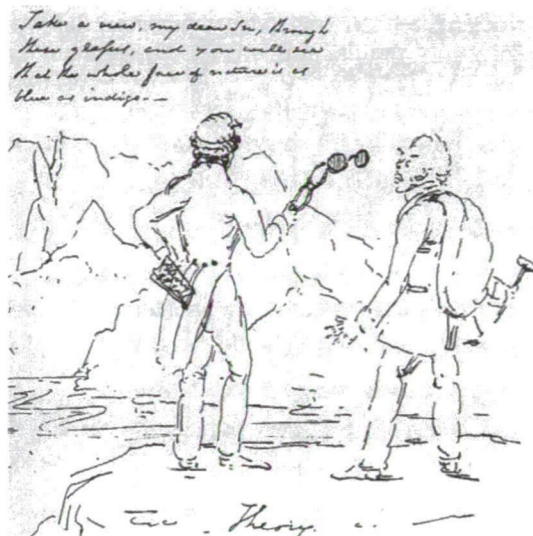 Take a view, my dear Sir, through
these glasses, and you will see
that the whole face of nature is as
blue as indigo.—
Theory